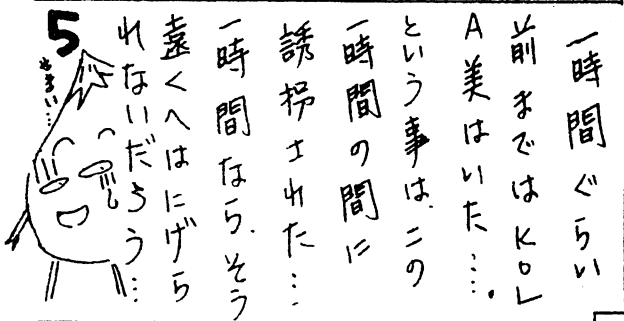 5
一時間ぐらい
前まではKO
A美はいた….
という事は、この
一時間の間に
誘拐された…
一時間なら、そう
遠くへはにげら
れないだろう…